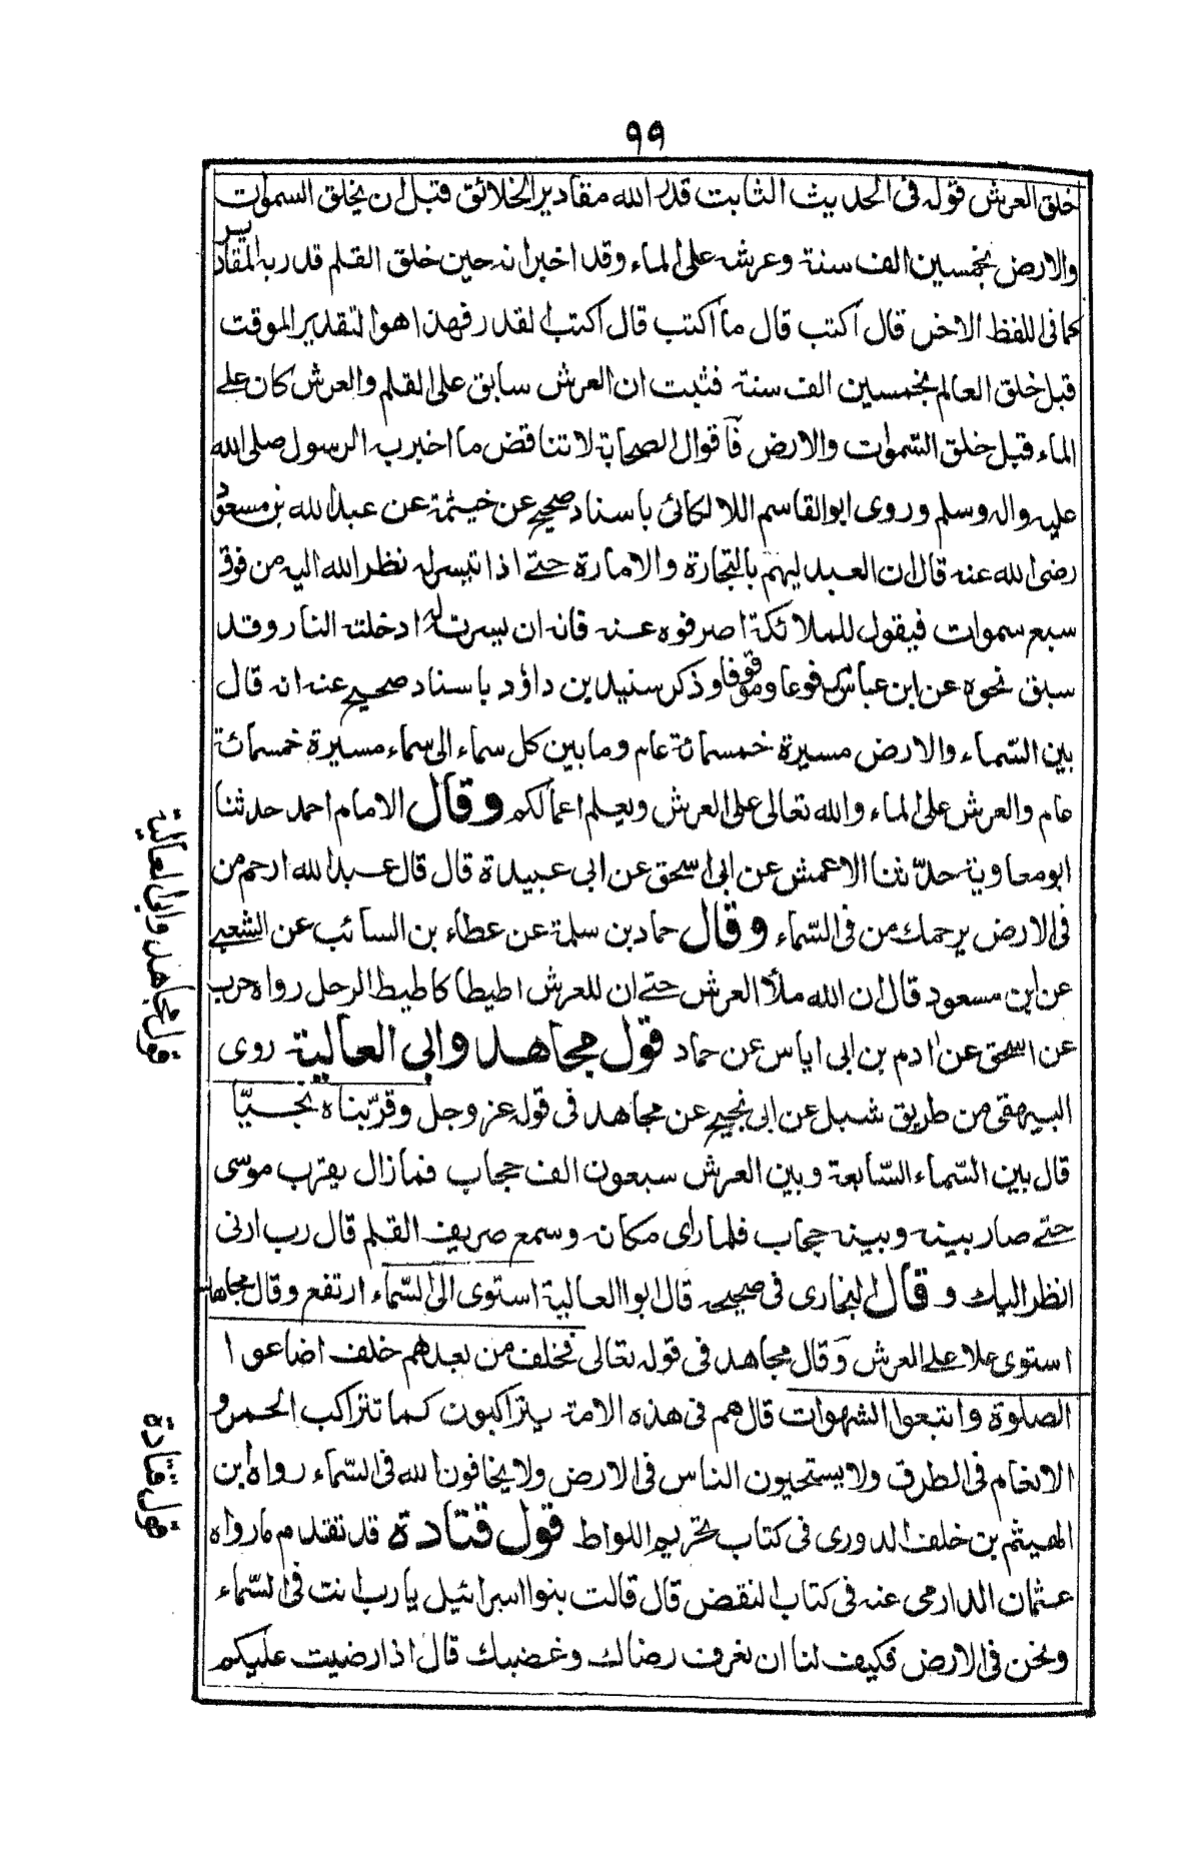 ٩٩
خلق العرش قوله فى الحديث الثابت قدر الله مقادير الخلائق قبل ان يخلق السموات
والارض بخمسين الف سنة وعرشه على الماء وقد اخبر انه حين خلق القلم قدر به المقادير
كما فى اللفظ الاخر قال اكتب قال ما اكتب قال اكتب القدر فهذا هو التقدير الموقت
قبل خلق العالم بخمسين الف سنة فثبت ان العرش سابق على القلم والعرش كان على
الماء قبل خلق السّموات والارض فاقوال الصحابة لا تناقض ما اخبر به الرسول صلى الله
عليه واله وسلم وروى ابو القاسم اللالكائى باسناد صحيح عن خيثمة عن عبد الله بن مسعود
رضى الله عنه قال ان العبد ليهم بالتجارة والامارة حتے اذا تيسر له نظر الله اليه من فوق
سبع سموات فيقول للملائكة اصرفوه عنه فانه ان يسرته له ادخلته النار وقد
سبق نحوه عن ابن عباس مرفوعا وموقوفا وذكر سنيد بن داؤد باسناد صحيح عنه انه قال
بين السّماء والارض مسيرة خمسمائة عام وما بين كل سماء الى سماء مسيرة خمسمائة
عام والعرش على الماء والله تعالى على العرش ويعلم اعمالكم وقال الامام احمد حدثنا
ابو معاوية حدّثنا الاعمش عن ابى اسحق عن ابى عبيدة قال قال عبد الله ارحم من
فى الارض يرحمك من فى السّماء وقال حماد بن سلمة عن عطاء بن السائب عن الشعبے
عن ابن مسعود قال ان الله ملأ العرش حتے ان للعرش اطيطا كاطيط الرحل رواه حرب
عن اسحق عن ادم بن ابى اياس عن حماد قول مجاهد وابى العالية روى
البيهقى من طريق شبل عن ابى نجيح عن مجاهد فى قوله عز وجل وقرّبناه نجيّا
قال بين السّماء السّابعة وبين العرش سبعون الف حجاب فما زال يقرب موسى
حتے صار بينه وبينه حجاب فلما راى مكانه وسمع صريف القلم قال رب ارنى
انظر اليك وقال البخارى فى صحيحه قال ابوا العالية استوى الى السّماء ارتفع وقال مجاهد
استوى علا علے العرش وقال مجاهد فى قوله تعالى فخلف من بعدهم خلف اضاعوا
الصلوة واتبعوا الشهوات قال هم فى هذه الامة يتراكبون كما تتراكب الحمر و
الانعام فى الطرق ولا يستحيون الناس فى الارض ولا يخافون الله فى السّماء رواه ابن
الهيثم بن خلف الدورى فى كتاب تحريم اللواط قول قتادة قد تقدم ما رواه
عثمان الدارمى عنه فى كتاب النقض قال قالت بنوا اسرائيل يا رب انت فى السّماء
ونحن فى الارض فكيف لنا ان نعرف رضاك وغضبك قال اذا رضيت عليكم
قول مجاهد وابى العالية
قول قتادة